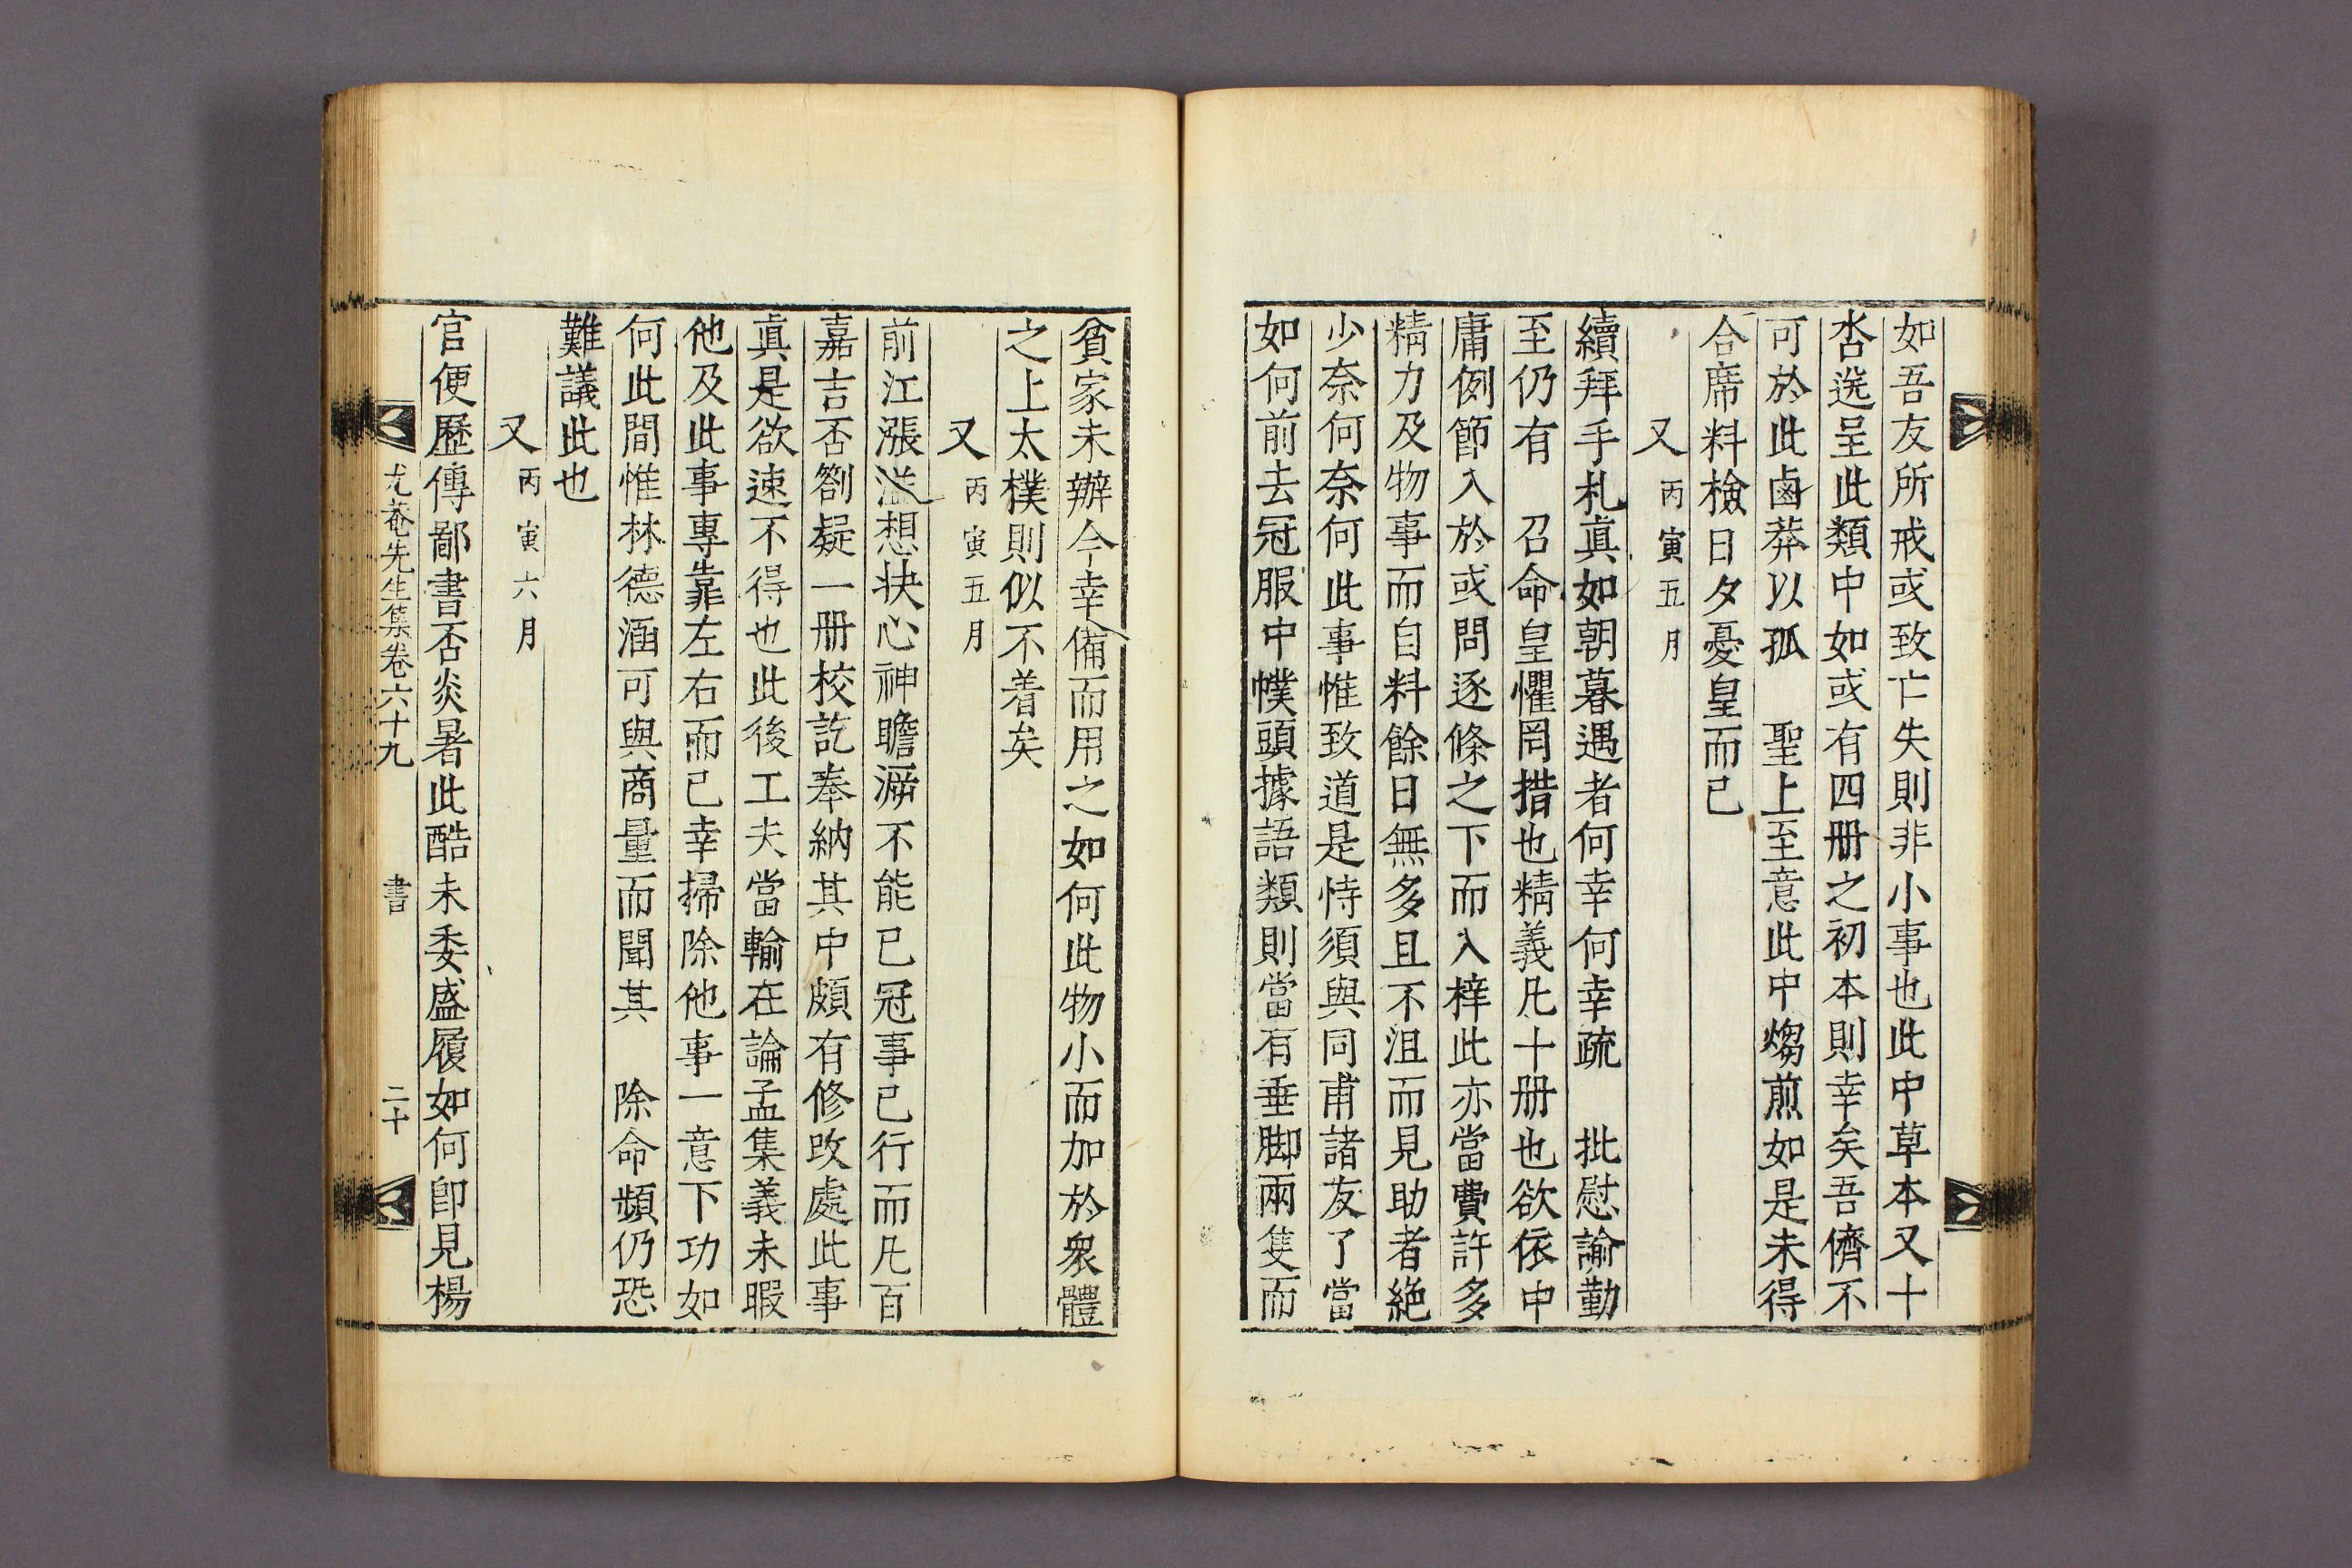 如吾友所戒或致亡失則非小事也此中草本又十
呇選呈此類中如或有四册之初本則幸矣吾儕不
可於此鹵莽以孤　聖上至意此中煼煎如是未得
合席料檢日夕憂皇而已
又丙寅五月
續拜手札眞如朝暮遇者何幸何幸疏　批慰諭勤
至仍有　召命皇懼罔措也精義凡十册也欲依中
庸例節入於或問逐條之下而入梓此亦當費許多
精力及物事而自料餘日無多且不沮而見助者絶
少奈何奈何此事惟致道是恃須與同甫諸友了當
如何前去冠服中幞頭據語類則當有垂脚兩隻而
貧家未辦今幸備而用之如何此物小而加於衆體
之上太樸則似不着矣
又丙寅五月
前江漲溢想抰心神瞻溯不能已冠事已行而凡百
嘉吉否劄疑一册校訖奉納其中頗有修改處此事
眞是欲速不得也此後工夫當輸在論孟集義未暇
他及此事專靠左右而已幸掃除他事一意下功如
何此間惟林德涵可與商量而聞其　除命頻仍恐
難議此也
又丙寅六月
官便歷傳鄙書否炎暑此酷未委盛履如何卽見楊
尤菴先生集卷六十九　書　二十